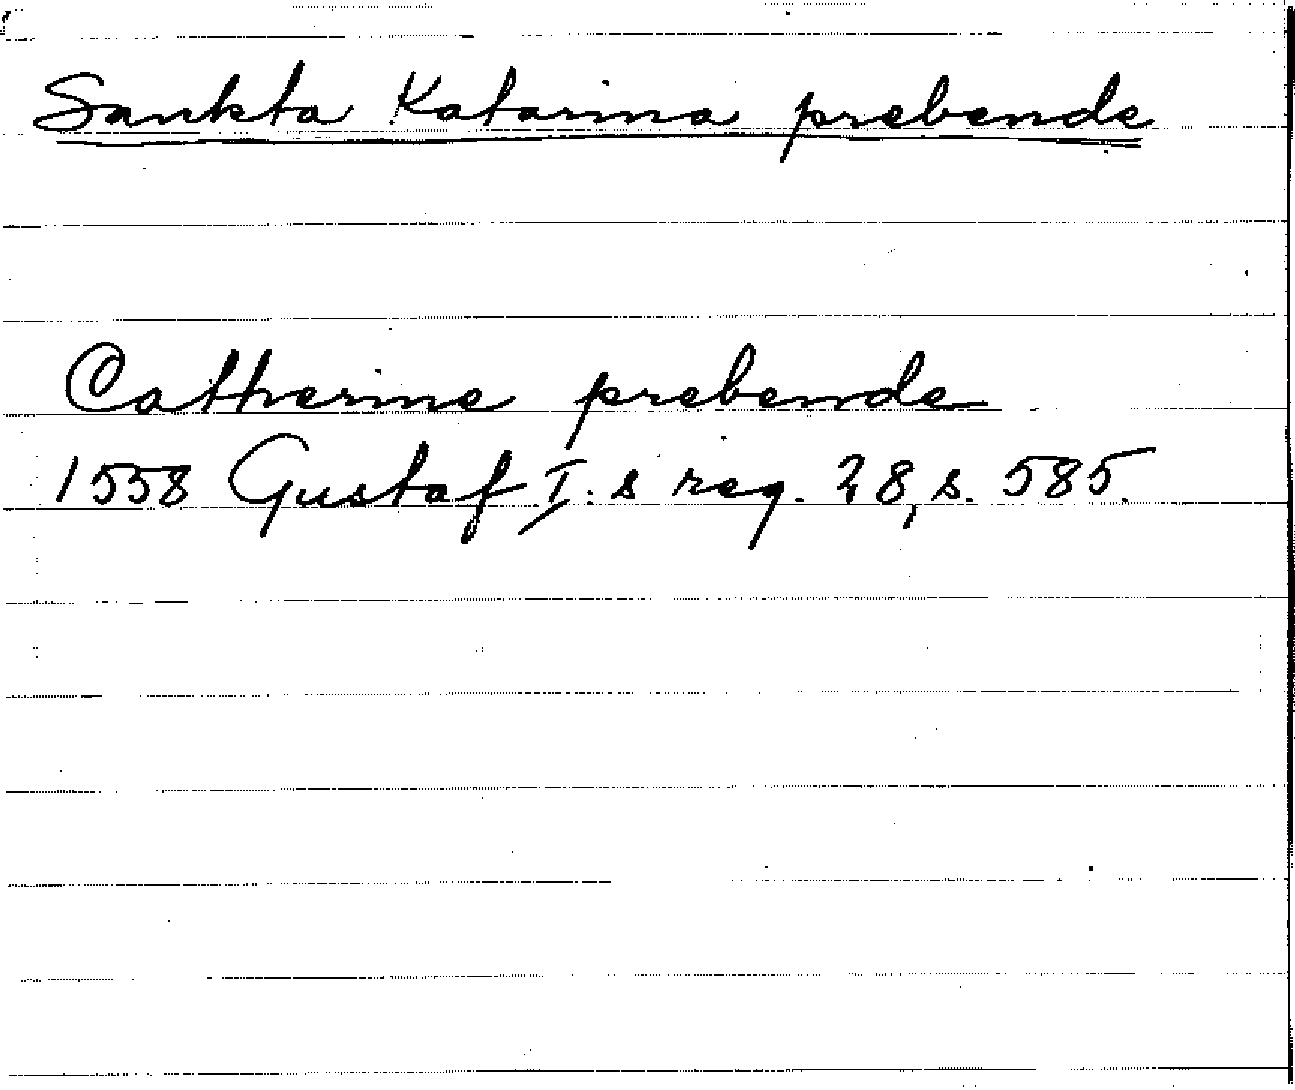 Sankta Katarina prebende
Catherine prebende
1558 Gustaf I:s reg. 28, s. 585.